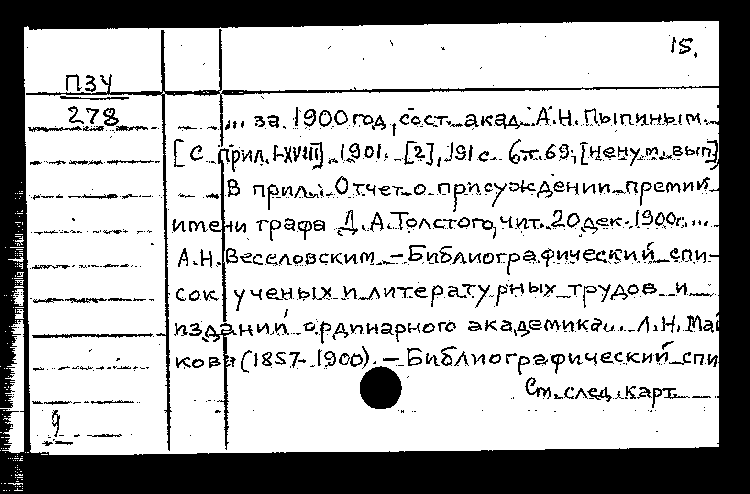 15.
ПЗУ
278
... за 1900 год, сост. акад. А.Н. Пыпиным.
[С прил. I-XVIII]. 1901. [2], 191 с. (т. 69, [ненум. вып]
В прил.: Отчет о присуждении премий
имени графа Д.А. Толстого, чит. 20 дек. 1900г. ...
А.Н. Веселовским. - Библиографический спи-
сок ученых и литературных трудов и
изданий ординарного академика... Л.Н. Май
кова (1857-1900). - Библиографический спи
См. след. карт.
9